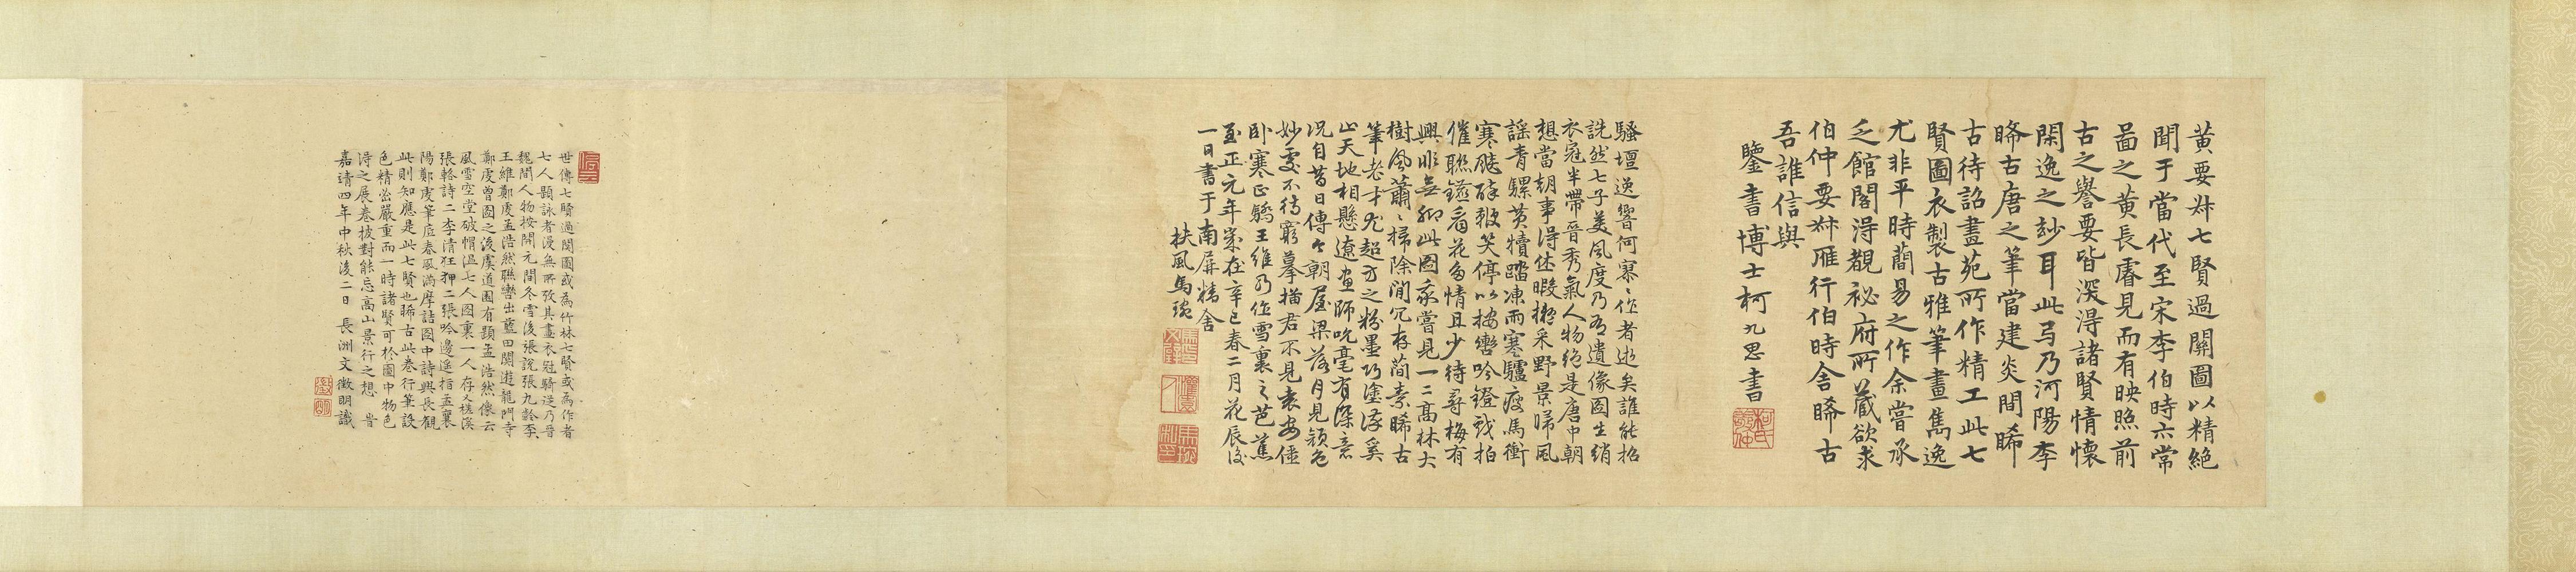 黄要叔七賢過關圖以精絶
聞于當代至宋李伯時亦常
啚之黄長睿見而有映照前
古之譽要皆深得諸賢情懷
閑逸之玅耳此弓乃河陽李
晞古唐之筆當建炎間晞
古待詔畫苑所作精工此七
賢圖衣製古雅筆畫雋逸
尤非平時蕳易之作余嘗承
乏館閣得覩祕府所蔵欲求
伯仲要叔雁行伯時舍晞古
吾誰信與
鑒書博士柯九思書
騷壇逸響何寥〻作者逝矣誰能招
詵然七子美風度乃有遺像圖生綃
衣冠半帶晉秀氣人物絶是唐中朝
想當胡事得休暇擷采野景歸風
謡青騾黄犢踏凍雨寒驢瘦馬衝
寒飈醉鞭笑停以按轡吟鐙戏拍
催聮鑣看花多情且少待尋梅有
興非無聊此圖我嘗見一二髙林大
樹風蕭〻掃除閒冗存蕳素晞古
筆老才尤超方之粉墨巧塗浮奚
止天地相懸遼畫師吮毫有深意
况自昔日傳今朝屋梁落月見顔色
妙處不待窮摹描君不見袁安僵
卧寒正驕王維乃作雪裏之芭蕉
至正元年歲在辛巳春二月花辰後
一日書于南屏精舍
扶風馬琬
世傳七賢過關圖或為竹林七賢或為作者
七人題詠者漫無所攷其畫衣冠騎從乃晉
魏間人物按開元間冬雪後張說張九齡李
王維鄭虔孟浩然聯轡出藍田關遊龍門寺
鄭虔曾圖之後虞道園有題孟浩然像云
風雪空堂破帽温七人圖裏一人存又槎溪
張輅詩二李清狂狎二張吟邊遥指孟襄
陽鄭虔筆底春風滿摩詰圖中詩興長觀
此則知應是此七賢也晞古此卷行筆設
色精密嚴重而一時諸賢可於圖中物色
得之展卷披對能忘高山景行之想昔
嘉靖四年中秋後二日長洲文徵明識